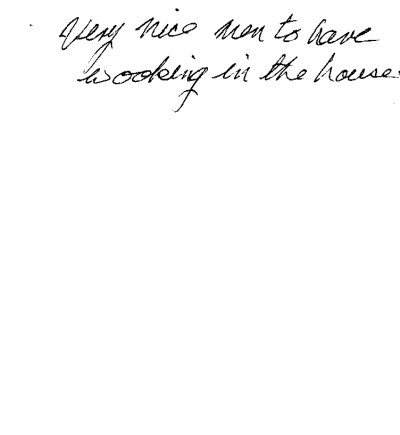 Very nice men to have
wooking in the house